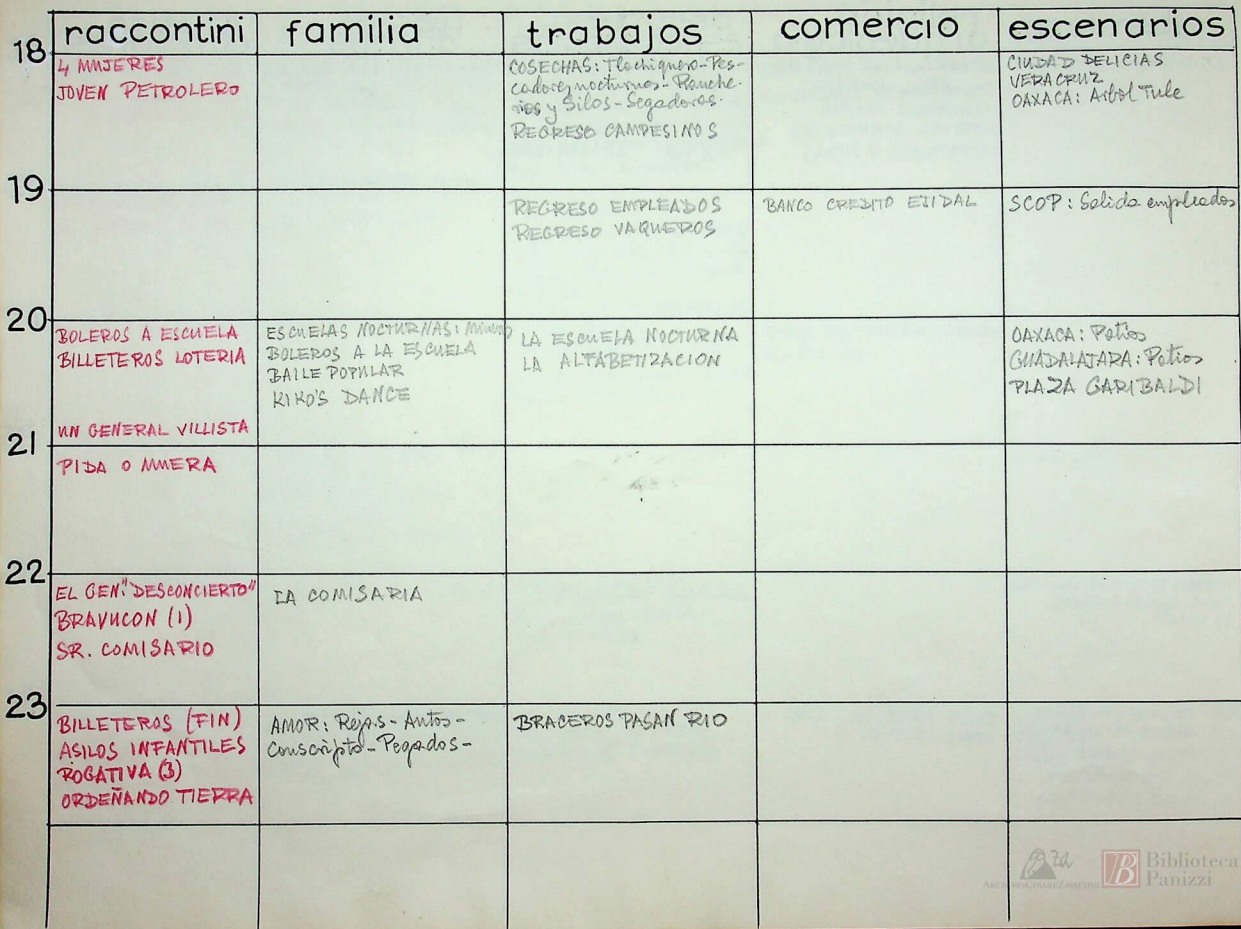 raccontini familia trabajos comercio escenarios
18
4 MUJERES
JOVEN PETROLERO
COSECHAS: Tlachiquero-Pes-
cadores nocturnos - Ranche-
rios y Silos - Segadoras.
REGRESO CAMPESINOS
CIUDAD DELICIAS
VERACRUZ
OAXACA: Arbol Tule
19
REGRESO EMPLEADOS
REGRESO VAQUEROS
BANCO CREDITO EJIDAL
SCOP: Salida empleados
20
BOLEROS A ESCUELA
BILLETEROS LOTERIA
UN GENERAL VILLISTA
ESCUELAS NOCTURNAS:
BOLEROS A LA ESCUELA
BAILE POPULAR
KIKO'S DANCE
LA ESCUELA NOCTURNA
LA ALFABETIZACION
OAXACA: Patios
GUADALAJARA: Patios
PLAZA GARIBALDI
21
PIDA O MUERA
22
EL GEN. "DESCONCIERTO"
BRAVUCON (1)
SR. COMISARIO
LA COMISARIA
23
BILLETEROS (FIN)
ASILOS INFANTILES
ROGATIVA (3)
ORDEÑANDO TIERRA
AMOR: Rejas - Autos -
Conscripto - Pegados -
BRACEROS PASAN RIO
Za
Archivio Cesare Zavattini
B
Biblioteca
Panizzi